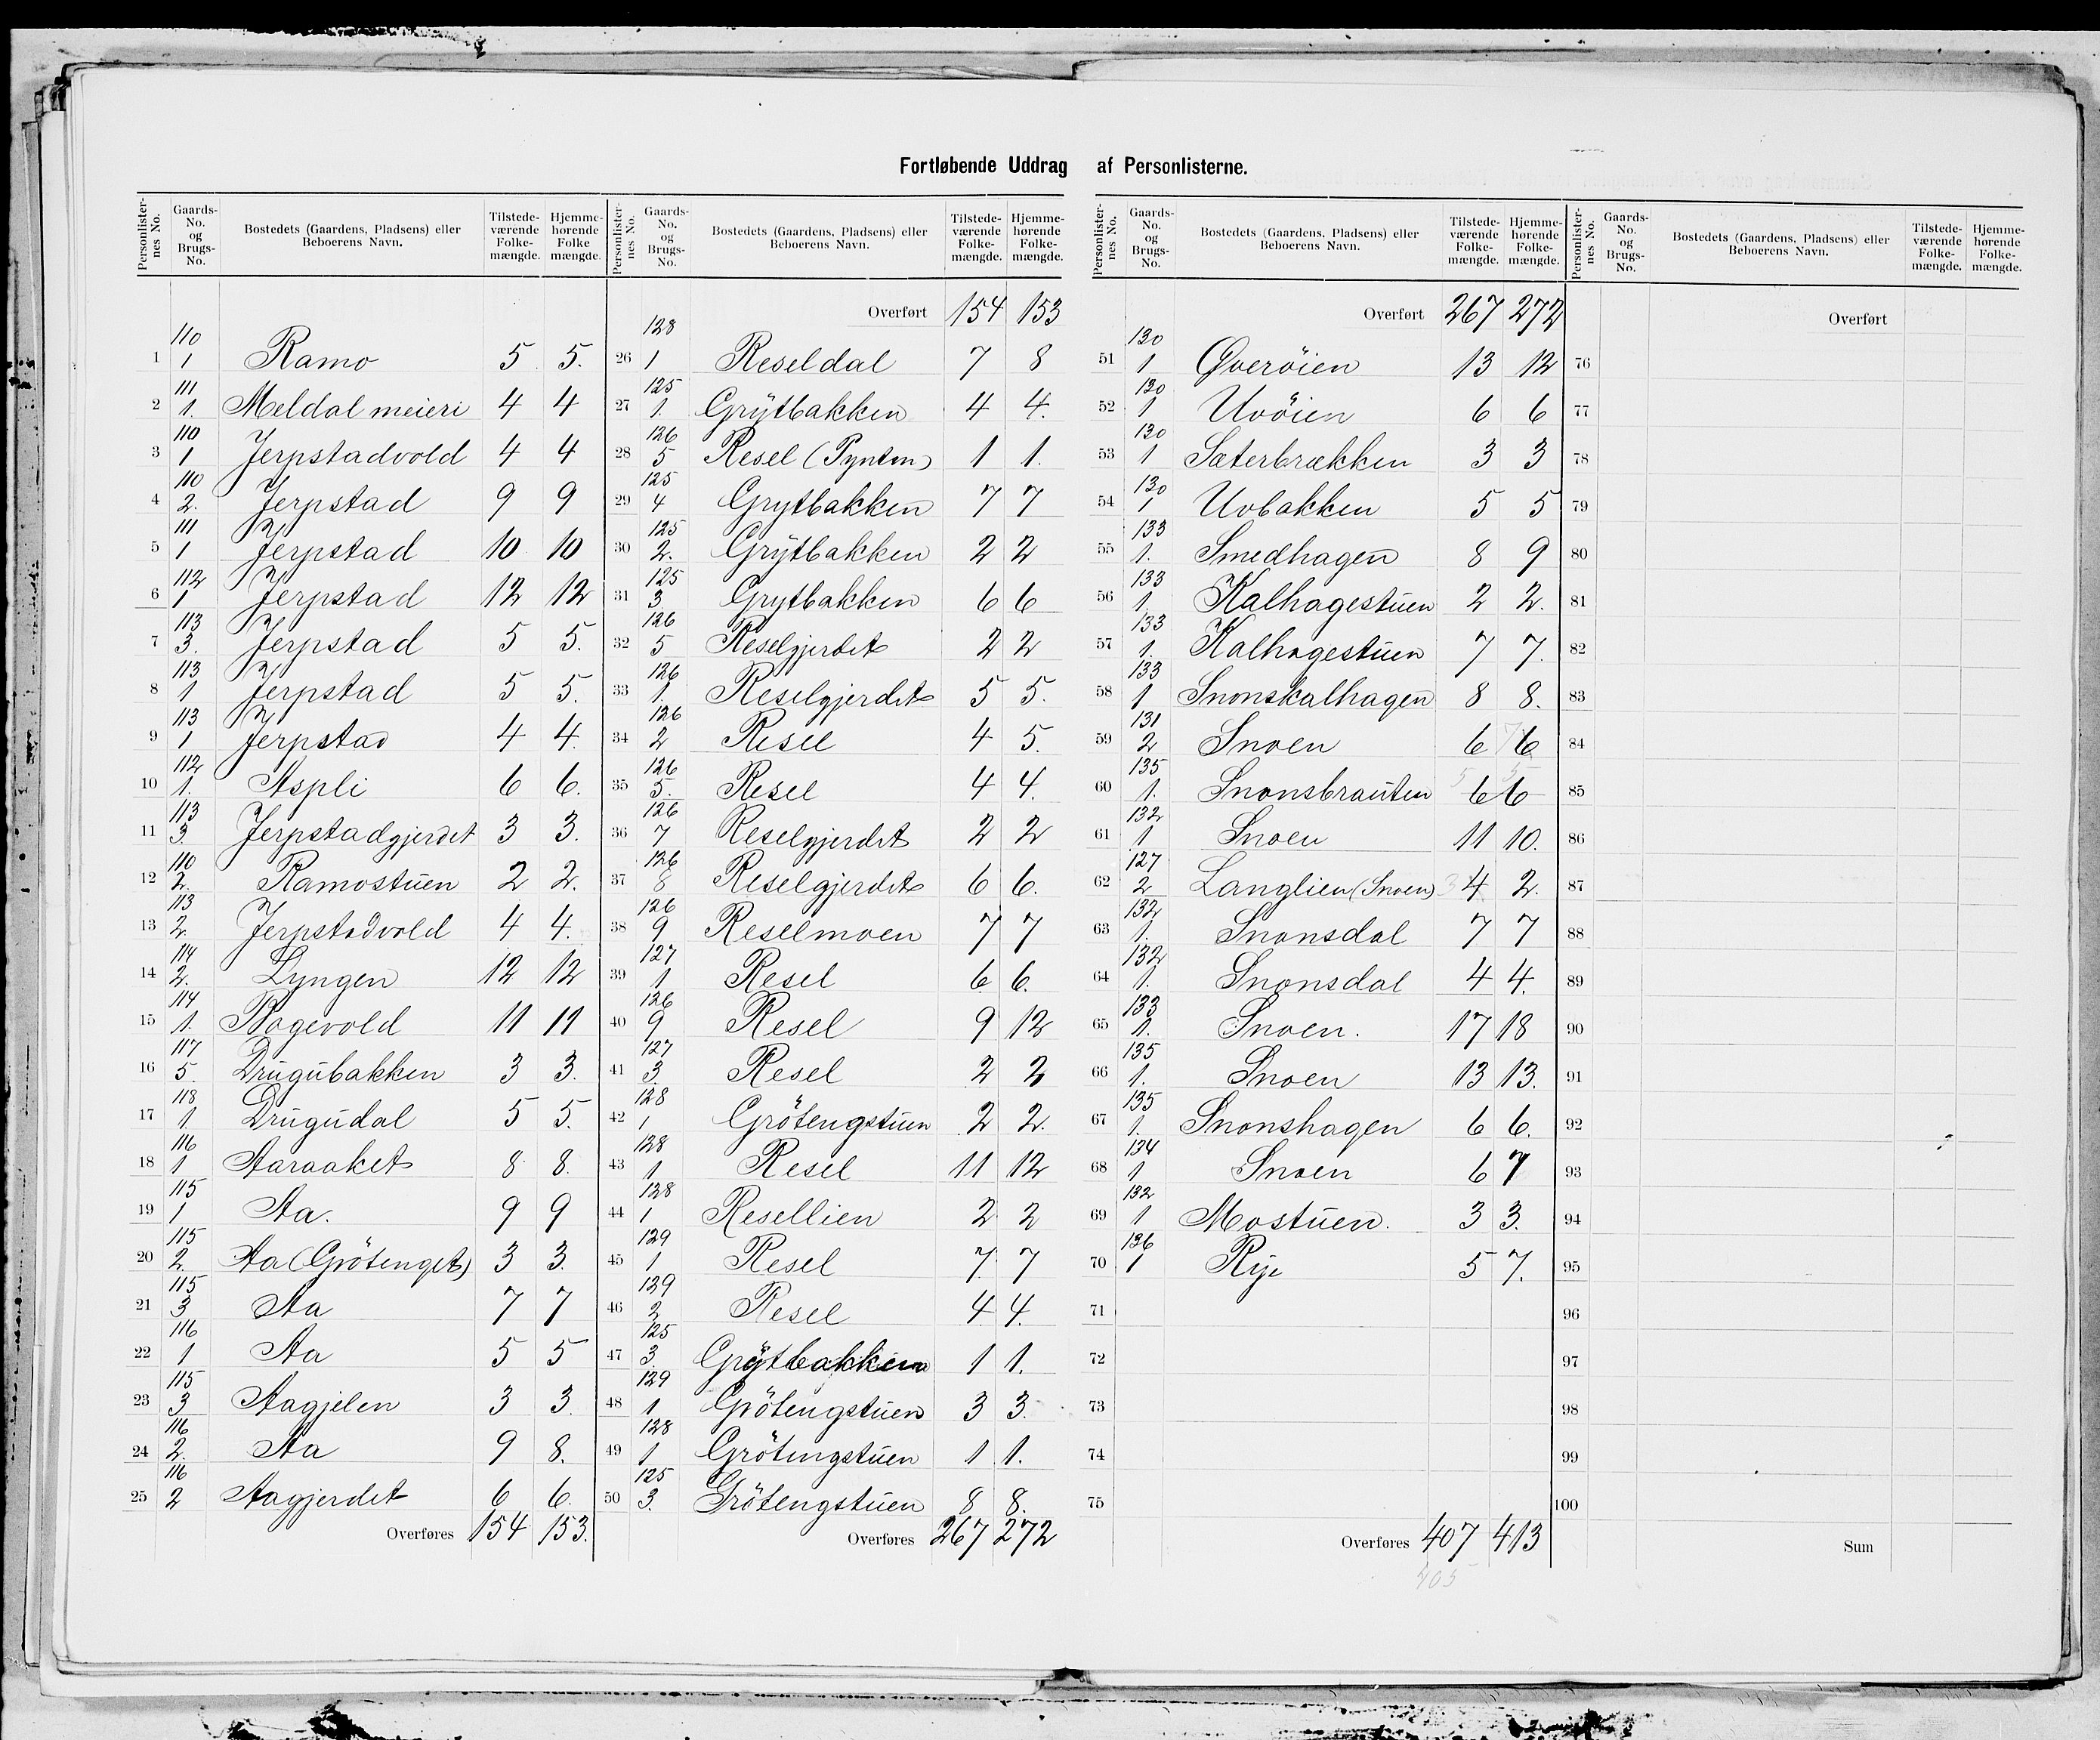 Fortløbende Uddrag af Personlisterne.
Personlisternes No. Gaards-No. og Brugs-No. Bostedets (Gaardens, Pladsens) eller Beboerens Navn. Tilstedeværende Folkemængde. Hjemmehørende Folkemængde.
1 110 1 Ramo 5 5.
2 111 1. Meldal meieri 4 4
3 110 1 Jerpstadvold 4 4
4 110 2. Jerpstad 9 9
5 111 1 Jerpstad 10 10
6 112 1 Jerpstad 12 12
7 113 3. Jerpstad 5 5.
8 113 1 Jerpstad 5 5.
9 113 1 Jerpstad 4 4.
10 112 1. Aspli 6 6.
11 113 3. Jerpstadgjerdet 3 3.
12 110 2. Ramostuen 2 2.
13 113 2. Jerpstadvold 4 4.
14 114 2. Lyngen 12 12
15 114 1. Bagevold 11 11
16 117 5. Drugubakken 3 3.
17 118 1. Drugudal 5 5.
18 116 1 Aaraaket 8 8.
19 115 1 Aa. 9 9
20 115 2. Aa (Grötenget) 3 3.
21 115 3 Aa 7 7
22 116 1 Aa 5 5
23 115 3 Aagjelen 3 3.
24 116 2. Aa 9 8.
25 116 2 Aagjerdet 6 6.
Overføres 154 153.
Personlisternes No. Gaards-No. og Brugs-No. Bostedets (Gaardens, Pladsens) eller Beboerens Navn. Tilstedeværende Folkemængde. Hjemmehørende Folkemængde.
Overført 154 153
26 128 1 Reseldal 7 8
27 125 1. Grytbakken 4 4.
28 126 5 Resel (Pynten) 1 1.
29 125 4 Grytbakken 7 7
30 125 2. Grytbakken 2 2
31 125 3 Grytbakken 6 6
32 126 5 Reselgjerdet 2 2
33 126 1 Reselgjerdet 5 5.
34 126 2 Resel 4 5.
35 126 5. Resel 4 4.
36 126 7 Reselgjerdet 2 2
37 126 8 Reselgjerdet 6 6.
38 126 9 Reselmoen 7 7
39 127 1 Resel 6 6.
40 126 9 Resel 9 12
41 127 3. Resel 2 2
42 128 1 Grötengstuen 2 2.
43 128 1 Resel 11 12
44 128 1 Resellien 2 2
45 129 1 Resel 7 7
46 129 2 Resel 4 4.
47 125 3. Grytbakken 1 1.
48 129 1 Grötengstuen 3 3.
49 128 1 Grötengstuen 1 1.
50 125 3. Grötengstuen 8 8.
Overføres 267 272
Personlisternes No. Gaards-No. og Brugs-No. Bostedets (Gaardens, Pladsens) eller Beboerens Navn. Tilstedeværende Folkemængde. Hjemmehørende Folkemængde.
Overført 267 272
51 130 1 Qverøien 13 12
52 130 1 Uvöien 6 6
53 130 1 Sæterbrækken 3 3
54 130 1 Uvbakken 5 5
55 133 1. Smedhagen 8 9
56 133 1. Kalhagestuen 2 2.
57 133 1. Kalhagestuen 7 7.
58 133 1 Snonskalhagen 8 8.
59 131 2 Snoen 6 7 6
60 135 1. Snonsbrauten 5 6 5 6
61 132 1 Snoen 11 10.
62 127 2 Langlien (Snoen) 3 4 2.
63 132 1. Snonsdal 7 7
64 132 1. Snonsdal 4 4.
65 133 1. Snoen. 17 18
66 135 1. Snoen 13 13.
67 135 1. Snonshagen 6 6.
68 134 1 Snoen 6 7
69 132 1 Mostuen. 3 3.
70 136 1 Rye 5 7.
71
72
73
74
75
Overføres 407 413
405
Personlisternes No. Gaards-No. og Brugs-No. Bostedets (Gaardens, Pladsens) eller Beboerens Navn. Tilstedeværende Folkemængde. Hjemmehørende Folkemængde.
Overført
76
77
78
79
80
81
82
83
84
85
86
87
88
89
90
91
92
93
94
95
96
97
98
99
100
Sum